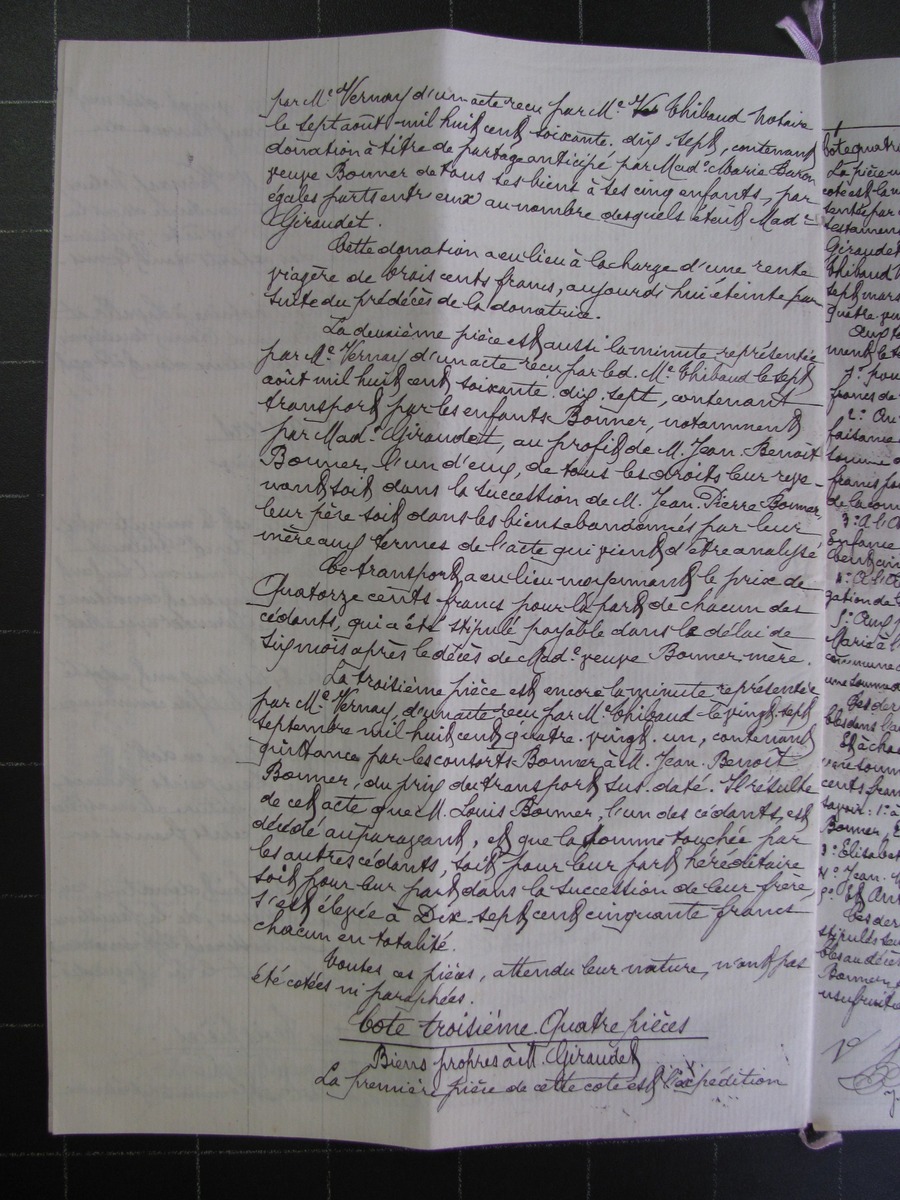 par Me Vernay d'un acte recu par Me Thibaud notaire
le sept août mil huit cent soixante-dix-sept, contenant
donation à titre de partage anticipé par Made Marie Baron
veuve Bonner de tous ses biens à ses cinq enfants, par
égales parts entr'eux au nombre desquels étent Made
Giraudet.
Cette donation a eu lieu à la charge d'une rente
viagère de trois cents francs, aujourd'hui éteinte par
suite du prédécès de la donatrice.
La deuxième pièce est aussi la minute représentée
par Me Vernay d'un acte recu par led. Me Thibaud le sept
août mil huit cent soixante-dix-sept, contenant
transport par les enfants Bonner, notamment
par Made Giraudet, au profit de M. Jean-Benoît
Bonner, l'un d'eux, de tous les droits leur reve-
nant soit dans la succession de M. Jean-Pierre Bonner,
leur père soit dans les biens abandonnés par leur
mère aux termes de l'acte qui vient d'être analysé
Ce transport a eu lieu moyennant le prix de
Quatorze cents francs pour la part de chacun des
cédants, qui a été stipulé payable dans le délai de
six mois après le décès de Made veuve Bonner mère.
La troisième pièce est encore la minute représentée
par Me Vernay, d'un acte recu par Me Thibaud le vingt-sept
septembre mil huit cent quatre-vingt-un, contenant
quittance par les consorts Bonner à M. Jean-Benoît
Bonner, du prix du transport sus-daté. Il résulte
de cet acte que M. Louis Bonner, l'un des cédants, est
décédé auparavant, et que la somme touchée par
les autres cédants, soit pour leur part héréditaire
soit pour leur part dans la succession de leur frère,
s'est élevée à Dix-sept cent cinquante francs
chacun en totalité.
Toutes ces pièces, attendu leur nature, n'ont pas
été cotées ni paraphées.
Cote troisième. Quatre pièces
Biens propres à M. Giraudet
La première pièce de cette cote est l'expédition